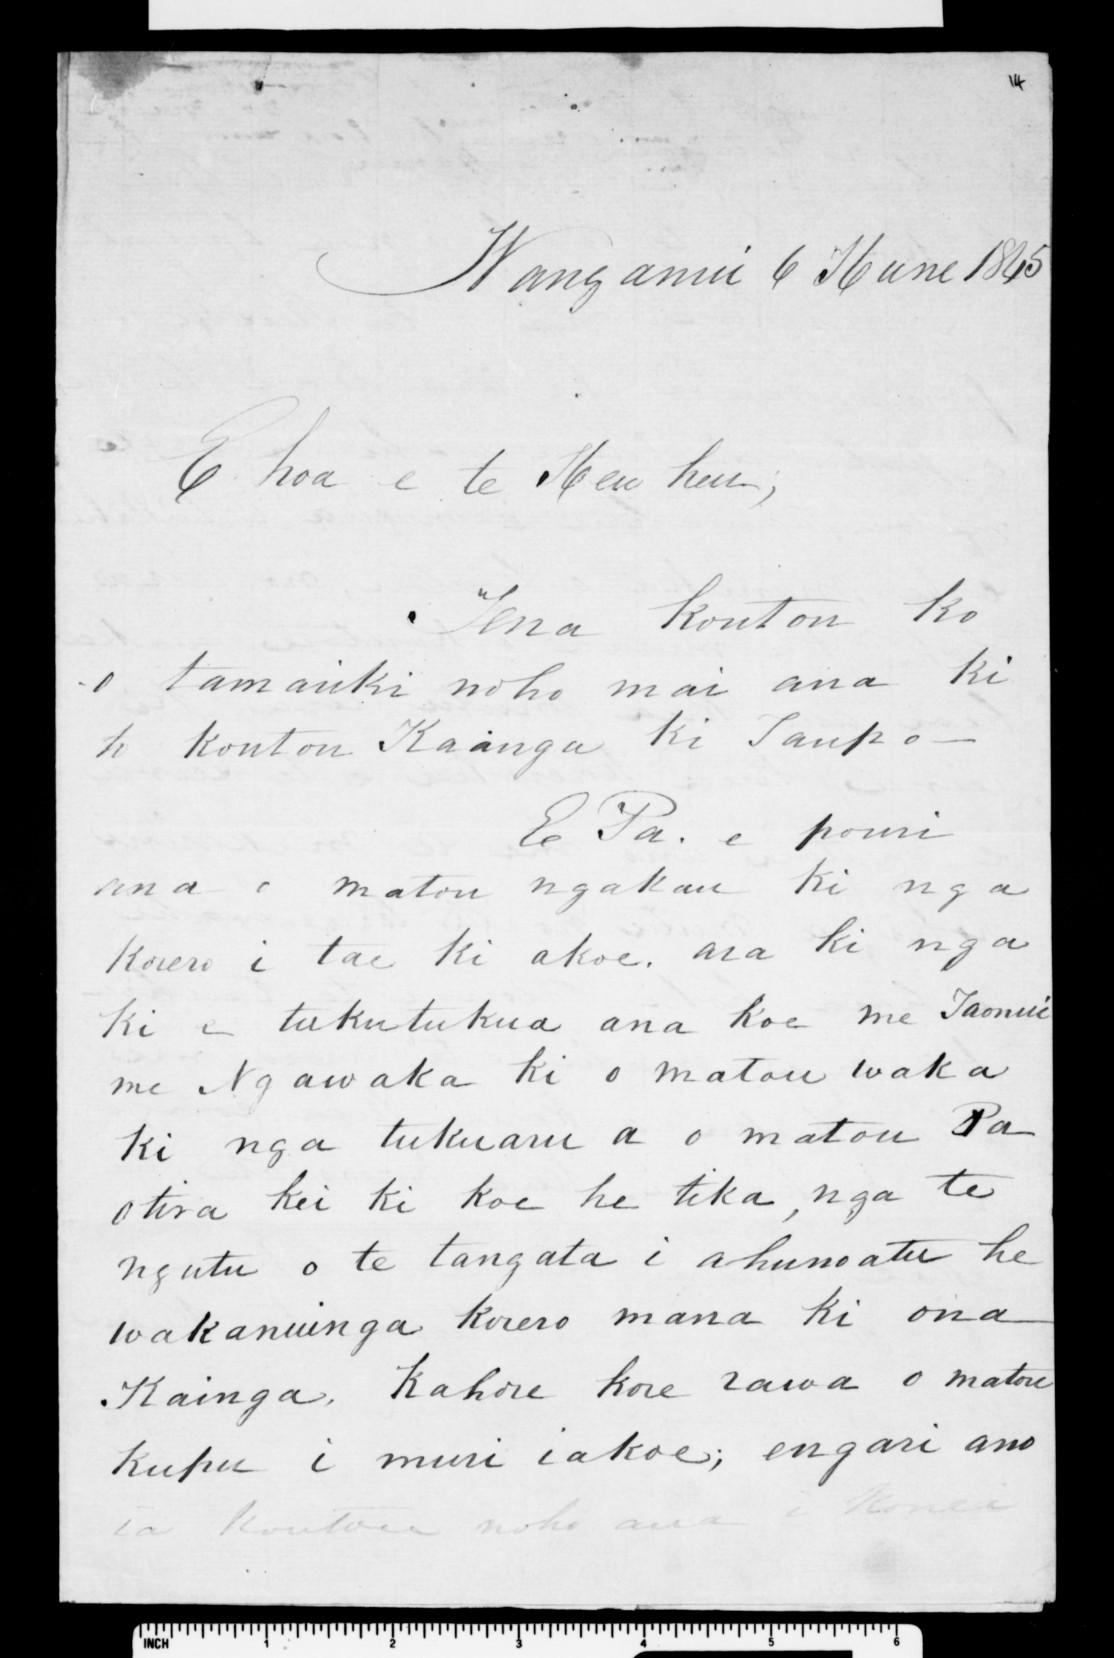 14
Wanganui 6 Hune 1845
E hoa e te Heu heu;
Tena koutou ko
o tamariki noho mai ana ki
to koutou Kaainga ki Taupo —
E Pa. e pouri
ana o matou ngakau ki nga
korero i tae ki akoe. ara ki nga
ki e tukutukua ana koe me Taonui
me Ngawaka ki o matou waka
ki nga tukuaru a o matou Pa
otira kei ki koe he tika, nga te
ngutu o te tangata i ahunoatu he
wakanuinga korero mana ki ona
Kainga. Kahore kore rawa o matou
kupu i muri iakoe; engari ano
ia koutou noho ana i konei
INCH 1 2 3 4 5 6